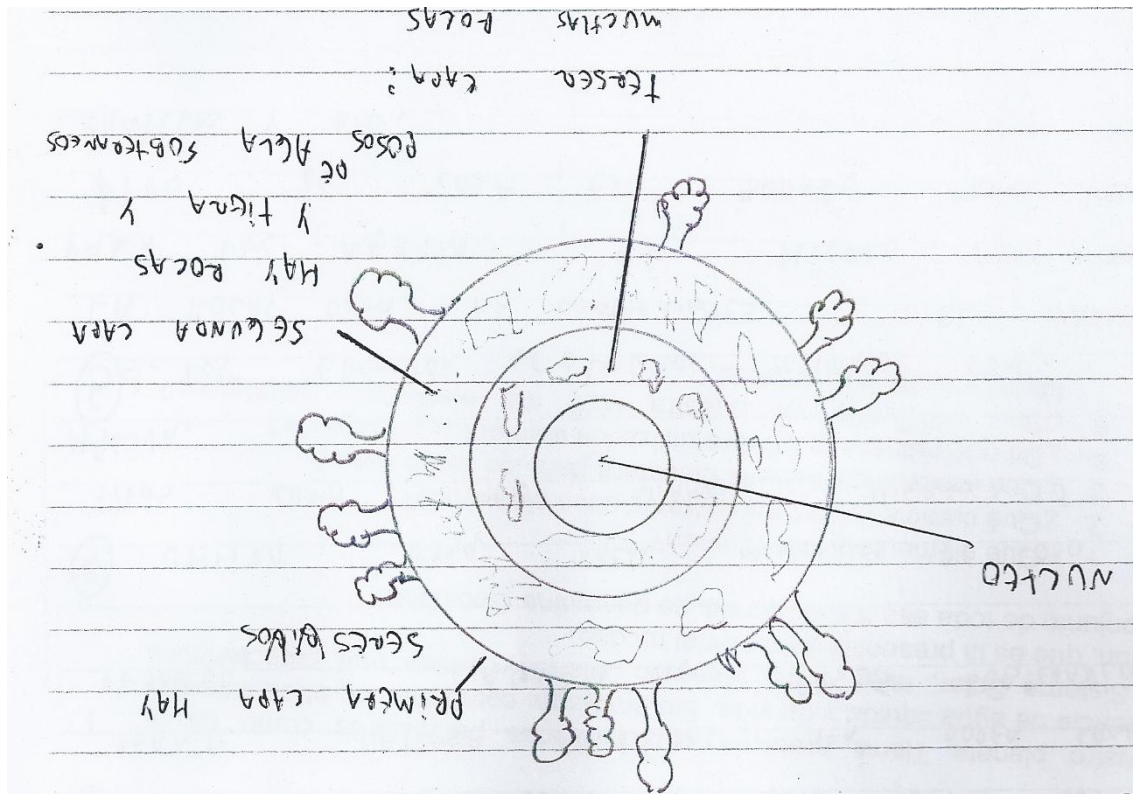 PRIMERA CAPA HAY
SERES BIBOS
NUCLEO
SEGUNDA CAPA
HAY ROCAS
Y TIERRA Y
POSOS DE AGUA SUBTERRNEOS
TERSER CAPA:
MUCHAS ROCAS